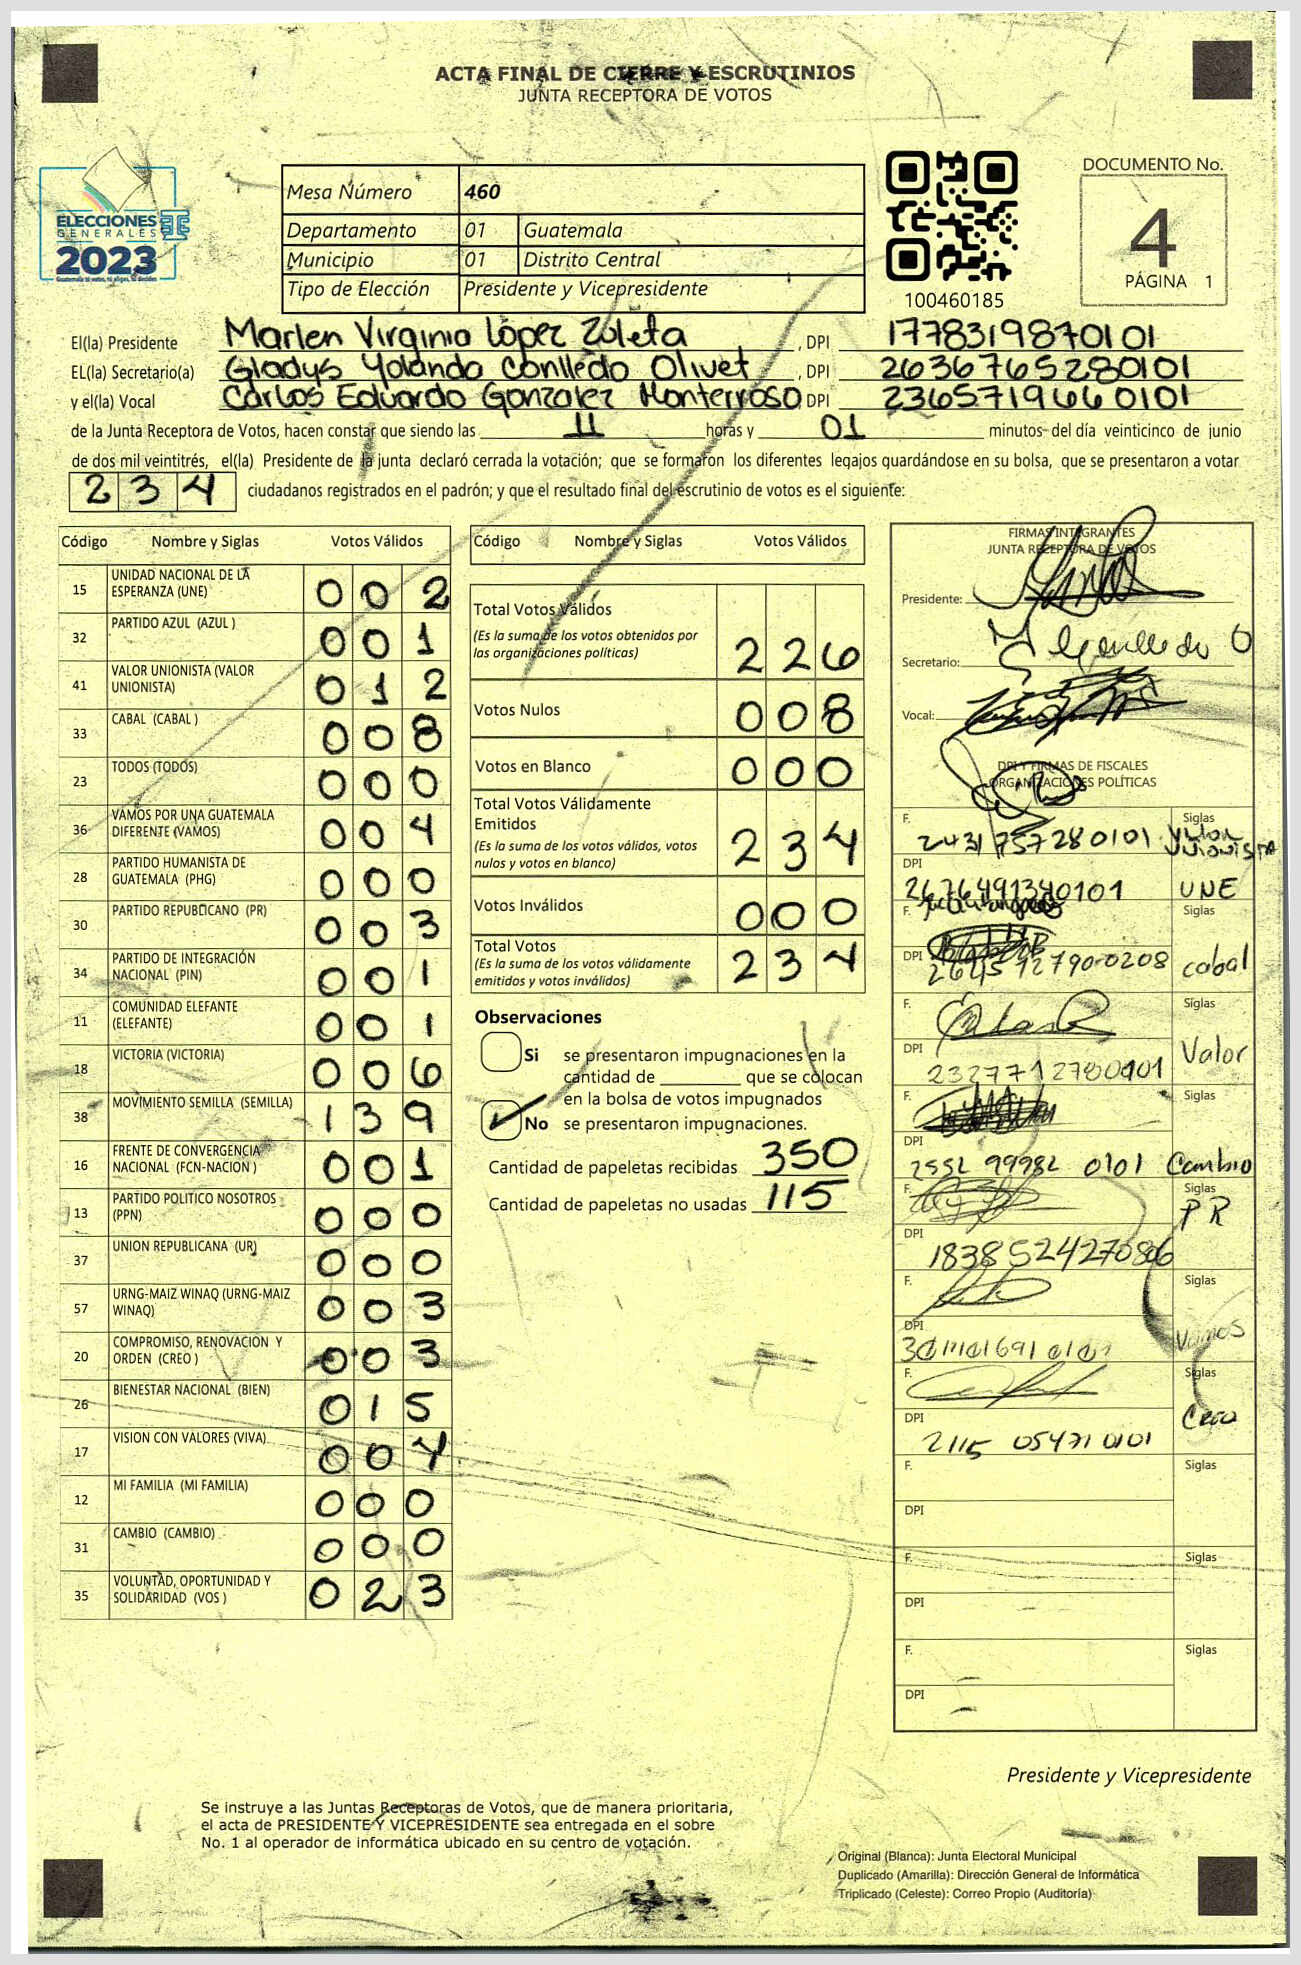 ACTA FINAL DE CIERRE Y ESCRUTINIOS
JUNTA RECEPTORA DE VOTOS
ELECCIONES
GENERALES
2023
Mesa Número 460
Departamento 01 Guatemala
Municipio 01 Distrito Central
Tipo de Elección Presidente y Vicepresidente
100460185
DOCUMENTO No.
4
PÁGINA 1
El(la) Presidente Marlen Virginia López Zuleta, DPI 1778319870101
EL(la) Secretario(a) Gladys Yolanda Conlledo Olivet, DPI 2636765280101
y el(la) Vocal Carlos Eduardo Gonzalez Monterroso, DPI 2365719660101
de la Junta Receptora de Votos, hacen constar que siendo las 11 horas y 01 minutos del día veinticinco de junio
de dos mil veintitrés, el(la) Presidente de la junta declaró cerrada la votación; que se formaron los diferentes legajos guardándose en su bolsa, que se presentaron a votar
234 ciudadanos registrados en el padrón; y que el resultado final del escrutinio de votos es el siguiente:
Código Nombre y Siglas Votos Válidos
15 UNIDAD NACIONAL DE LA ESPERANZA (UNE) 002
32 PARTIDO AZUL (AZUL ) 001
41 VALOR UNIONISTA (VALOR UNIONISTA) 012
33 CABAL (CABAL ) 008
23 TODOS (TODOS) 000
36 VAMOS POR UNA GUATEMALA DIFERENTE (VAMOS) 004
28 PARTIDO HUMANISTA DE GUATEMALA (PHG) 000
30 PARTIDO REPUBLICANO (PR) 003
34 PARTIDO DE INTEGRACIÓN NACIONAL (PIN) 001
11 COMUNIDAD ELEFANTE (ELEFANTE) 001
18 VICTORIA (VICTORIA) 006
38 MOVIMIENTO SEMILLA (SEMILLA) 139
16 FRENTE DE CONVERGENCIA NACIONAL (FCN-NACION ) 001
13 PARTIDO POLITICO NOSOTROS (PPN) 000
37 UNION REPUBLICANA (UR) 000
57 URNG-MAIZ WINAQ (URNG-MAIZ WINAQ) 003
20 COMPROMISO, RENOVACION Y ORDEN (CREO ) 003
26 BIENESTAR NACIONAL (BIEN) 015
17 VISION CON VALORES (VIVA) 004
12 MI FAMILIA (MI FAMILIA) 000
31 CAMBIO (CAMBIO) 000
35 VOLUNTAD, OPORTUNIDAD Y SOLIDARIDAD (VOS ) 023
Código Nombre y Siglas Votos Válidos
Total Votos Válidos 226
(Es la suma de los votos obtenidos por
las organizaciones políticas)
Votos Nulos 008
Votos en Blanco 000
Total Votos Válidamente
Emitidos 234
(Es la suma de los votos válidos, votos
nulos y votos en blanco)
Votos Inválidos 000
Total Votos 234
(Es la suma de los votos válidamente
emitidos y votos inválidos)
Observaciones
Si se presentaron impugnaciones en la
cantidad de ________ que se colocan
en la bolsa de votos impugnados
No se presentaron impugnaciones.
Cantidad de papeletas recibidas 350
Cantidad de papeletas no usadas 115
FIRMAS INTEGRANTES
JUNTA RECEPTORA DE VOTOS
Presidente:
Secretario:
Vocal:
DPI Y FIRMAS DE FISCALES
ORGANIZACIONES POLÍTICAS
F. Siglas
2431757280101 Valor Unionista
DPI
2676491340101 UNE
F. Siglas
DPI cabal
F. Siglas
DPI Valor
F. Siglas
DPI
2552 99982 0101 Cambio
F. Siglas
PR
DPI
1838524270806
F. Siglas
DPI Vamos
F. Siglas
DPI Creo
2115 05471 0101
F. Siglas
DPI
F. Siglas
DPI
F. Siglas
DPI
Presidente y Vicepresidente
Se instruye a las Juntas Receptoras de Votos, que de manera prioritaria,
el acta de PRESIDENTE Y VICEPRESIDENTE sea entregada en el sobre
No. 1 al operador de informática ubicado en su centro de votación.
Original (Blanca): Junta Electoral Municipal
Duplicado (Amarilla): Dirección General de Informática
Triplicado (Celeste): Correo Propio (Auditoría)